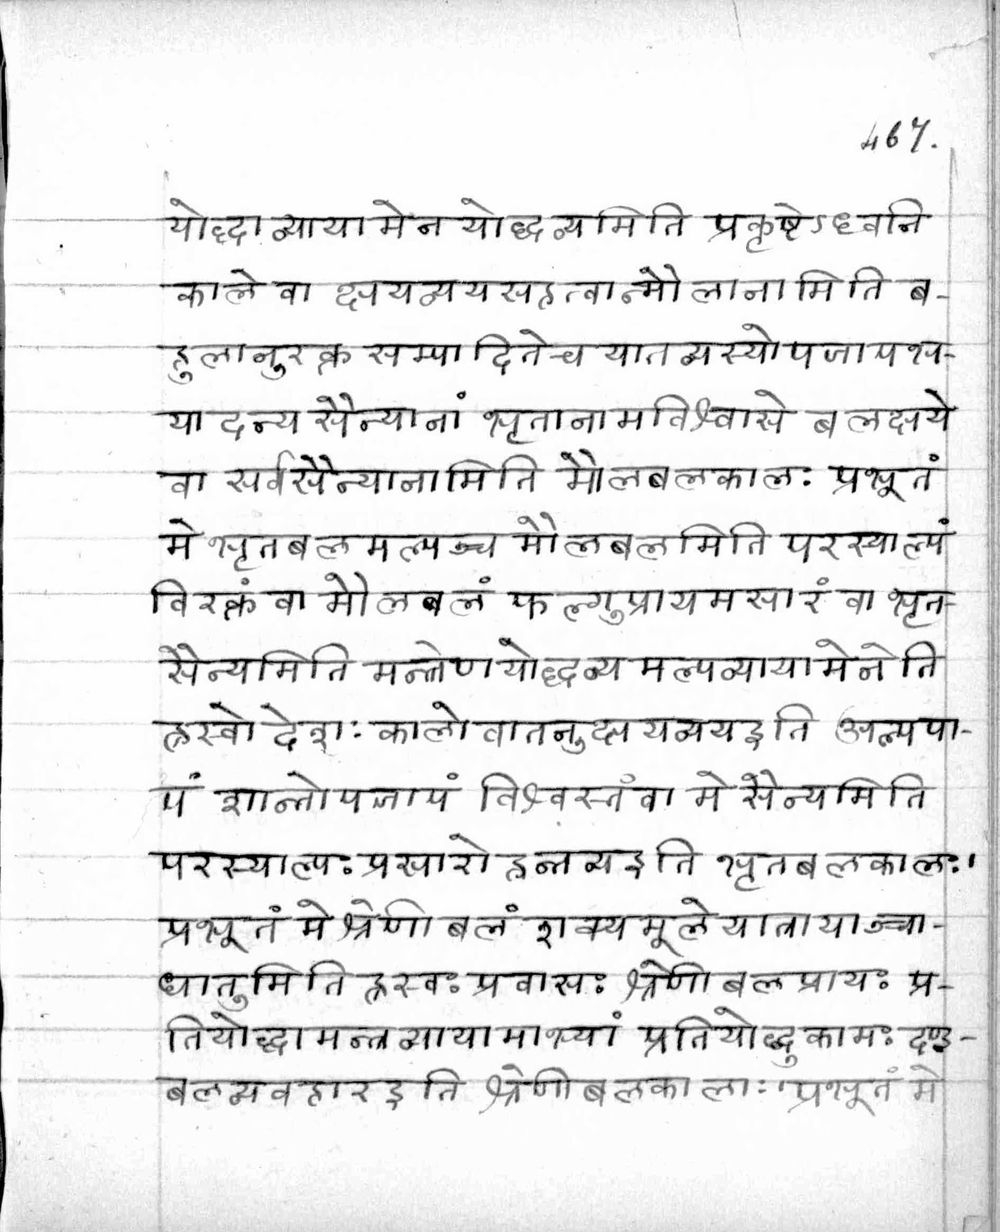 467.
योद्धा व्यायामेन योद्धव्यमिति प्रकृष्टेऽध्वनि
काले वा क्षयव्ययसहत्वान्मौलानामिति ब-
हुलानुरक्त सम्पादिते च यातव्यस्योपजापभ-
यादन्य सैन्यानां भृतानामविश्वासे बलक्षये
वा सर्वसैन्यानामिति मौलबलकालः प्रभूतं
मे भृतबलमल्पञ्च मौलबलमिति परस्याल्पं
विरक्तं वा मौलबलं फल्गुप्रायमसारं वा भृत-
सैन्यमिति मन्त्रेण योद्धव्यमल्पव्यायामेनेति
ह्रस्वो देशः कालो वा तनुक्षयव्यय इति अल्पपा-
पं शान्तोपजापं विश्वस्तं वा मे सैन्यमिति
परस्याल्पः प्रसारो हन्तव्य इति भृतबलकालः।
प्रभूतं मे श्रेणीबलं शक्यमूले यात्रायाञ्चा-
धातुमिति ह्रस्वः प्रवासः श्रेणीबलप्रायः प्र-
तियोद्धा मन्त्रव्यायामाभ्यां प्रतियोद्धुकामः दण्ड-
बलव्यवहार इति श्रेणीबलकालाः। प्रभूतं मे